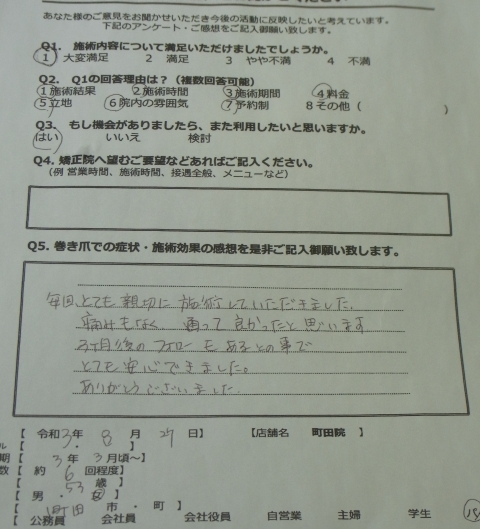 あなた様のご意見をお聞かせいただき今後の活動に反映したいと考えています。
下記のアンケート・ご感想をご記入御願い致します。
Q1. 施術内容について満足いただけましたでしょうか。
1 大変満足 2 満足 3 やや不満 4 不満
Q2. Q1の回答理由は?(複数回答可能)
1施術結果 2施術時間 3施術期間 4料金
5立地 6院内の雰囲気 7予約制 8その他( )
Q3. もし機会がありましたら、また利用したいと思いますか。
はい いいえ 検討
Q4. 矯正院へ望むご要望などあればご記入ください。
(例 営業時間、施術時間、接遇全般、メニューなど)
Q5. 巻き爪での症状・施術効果の感想を是非ご記入御願い致します。
毎回、とても親切に施術していただきました。
痛みもなく 通って良かったと思います
3ヶ月後のフォローもあるとの事で
とても安心できました。
ありがとうございました。
【 令和3年 8 月 27 日】 【店舗名 町田院 】
ル 【 ・ 】
期 【 3年 3月頃~】
数 【 約 6 回程度】
【 53 歳 】
【 男 ・ 女 】
【 町田 市 ・ 町 】
【 公務員 会社員 会社役員 自営業 主婦 学生